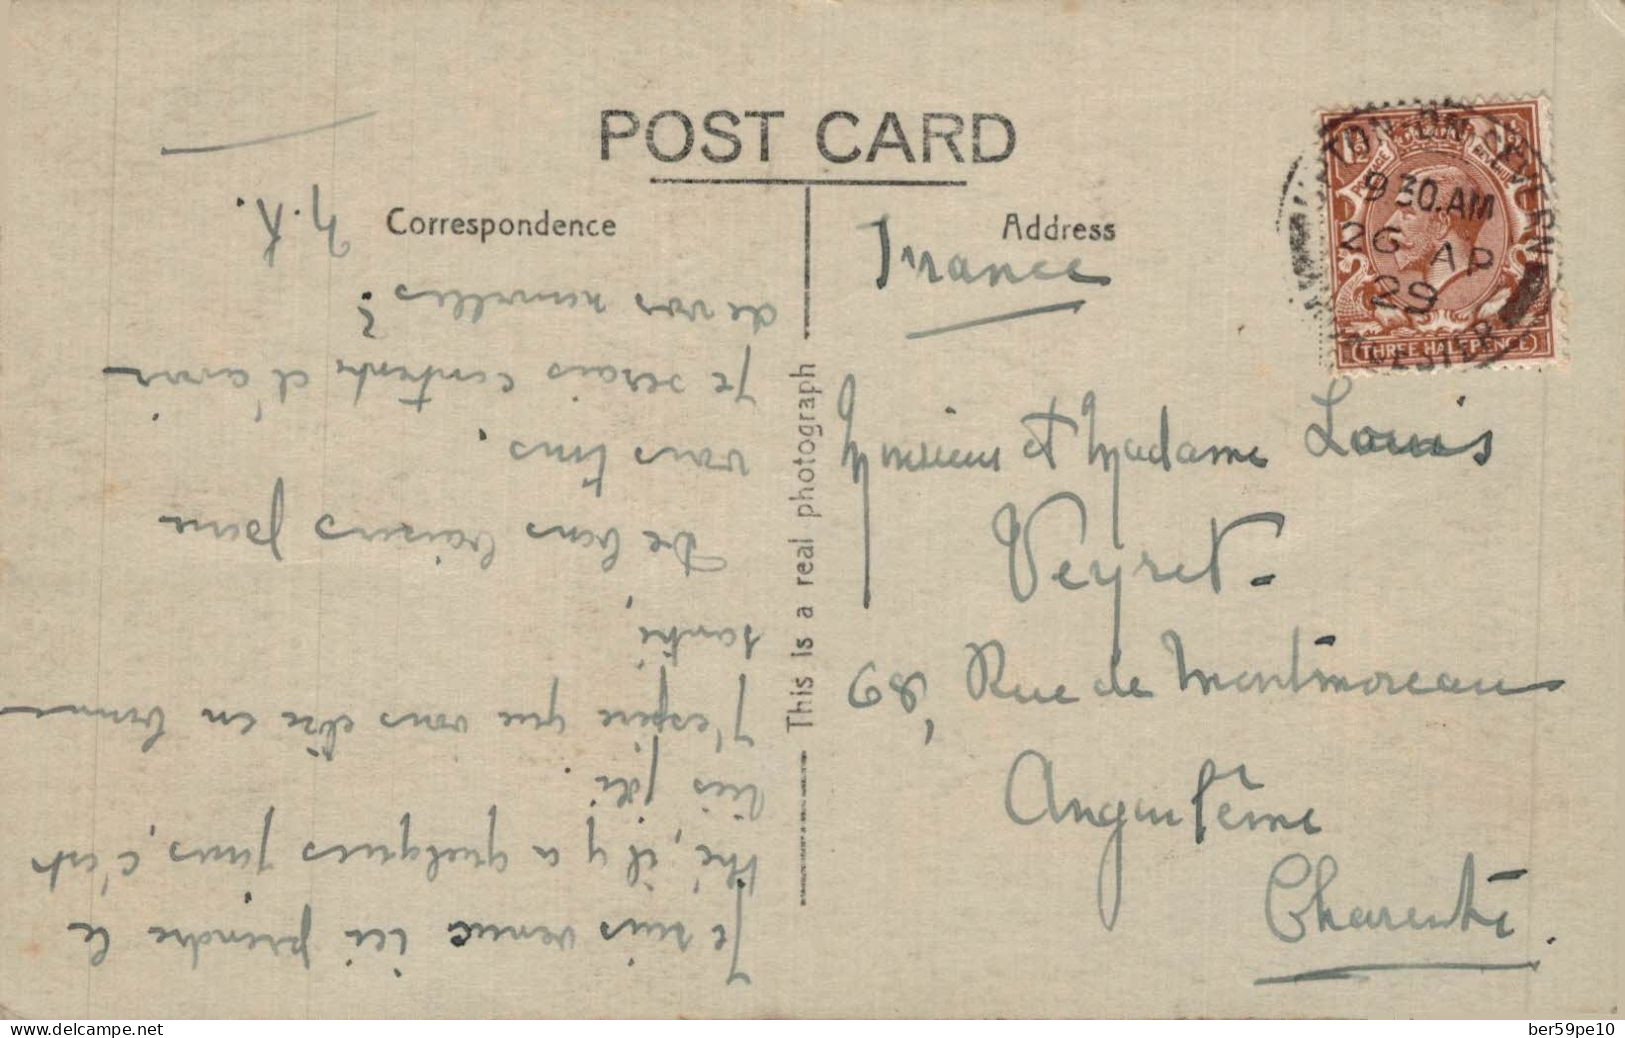 POST CARD
Correspondence
Address
This is a real photograph
Je suis venue ici prendre le
thé, il y a quelques jours, c'est
très joli.
J'espère que vous être en bonne
santé,
De bons baisers pour
vous tous.
Je serais contente d'avoir
de vos nouvelles?
France
Monsieur et Madame Louis
Veyret-
68, Rue de Montmoreau
Angoulême
Charente.
9 30.AM
26 AP
29
POSTAGE REVENUE
THREE HALFPENCE
delcampe.net
ber59pe10